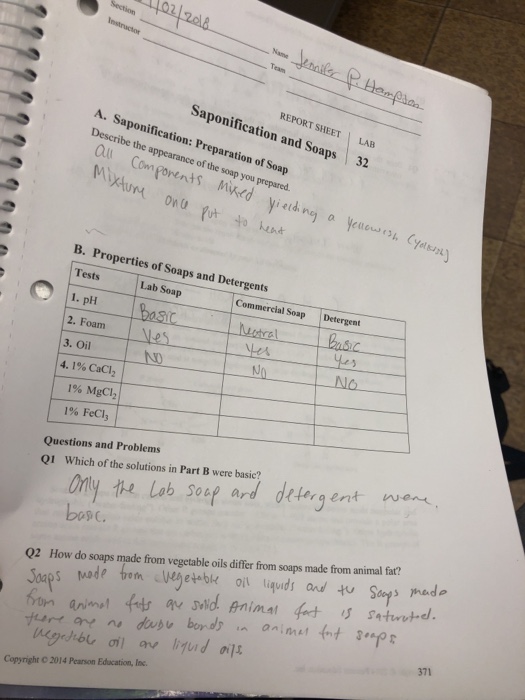 Section 1/02/2018
Instructor
Name Jennifer P. Hampton
Team
REPORT SHEET LAB
Saponification and Soaps 32
A. Saponification: Preparation of Soap
Describe the appearance of the soap you prepared.
all components mixed yielding a yellowish (yolkish)
Mixture once put to heat
B. Properties of Soaps and Detergents
Tests Lab Soap Commercial Soap Detergent
1. pH Basic Neutral Basic
2. Foam Yes Yes Yes
3. Oil NO No NO
4. 1% CaCl₂
1% MgCl₂
1% FeCl₃
Questions and Problems
Q1 Which of the solutions in Part B were basic?
Only the Lab soap and detergent were
basic.
Q2 How do soaps made from vegetable oils differ from soaps made from animal fat?
Soaps made from vegetable oil liquids and the Soaps made
from animal fats are solid. Animal fat is saturated.
there are no double bonds in animal fat soaps
vegetable oil are liquid oils
Copyright © 2014 Pearson Education, Inc.
371